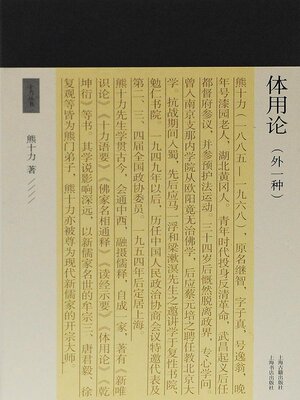 体用论
（外一种）
熊十力（一八八五—一九六八），原名继智，字子真，号逸翁，晚
年号漆园老人，湖北黄冈人。青年时代投身反清革命、武昌起义后任
都督府参议，并参预护法运动，三十四岁后慨然脱离政界，专心学问。
曾入南京支那内学院从欧阳竟无治佛学，后应蔡元培之聘任教北京大
学。抗战期间入蜀，先后应马一浮和梁漱溟先生之邀讲学于复性书院、
勉仁书院。一九四九年以后，历任中国人民政治协商会议特邀代表及
第二、三、四届全国政协委员。一九五四年后定居上海。
熊十力先生学贯古今，会通中西，融摄儒释，自成一家，著有《新唯
识论》《十力语要》《佛家名相通释》《读经示要》《体用论》《乾
坤衍》等书，其学说影响深远，以新儒家名世的牟宗三、唐君毅、徐
复观等皆为熊门弟子，熊十力亦被尊为现代新儒家的开宗大师。
十力丛书
熊十力 著
上海古籍出版社
上海书店出版社